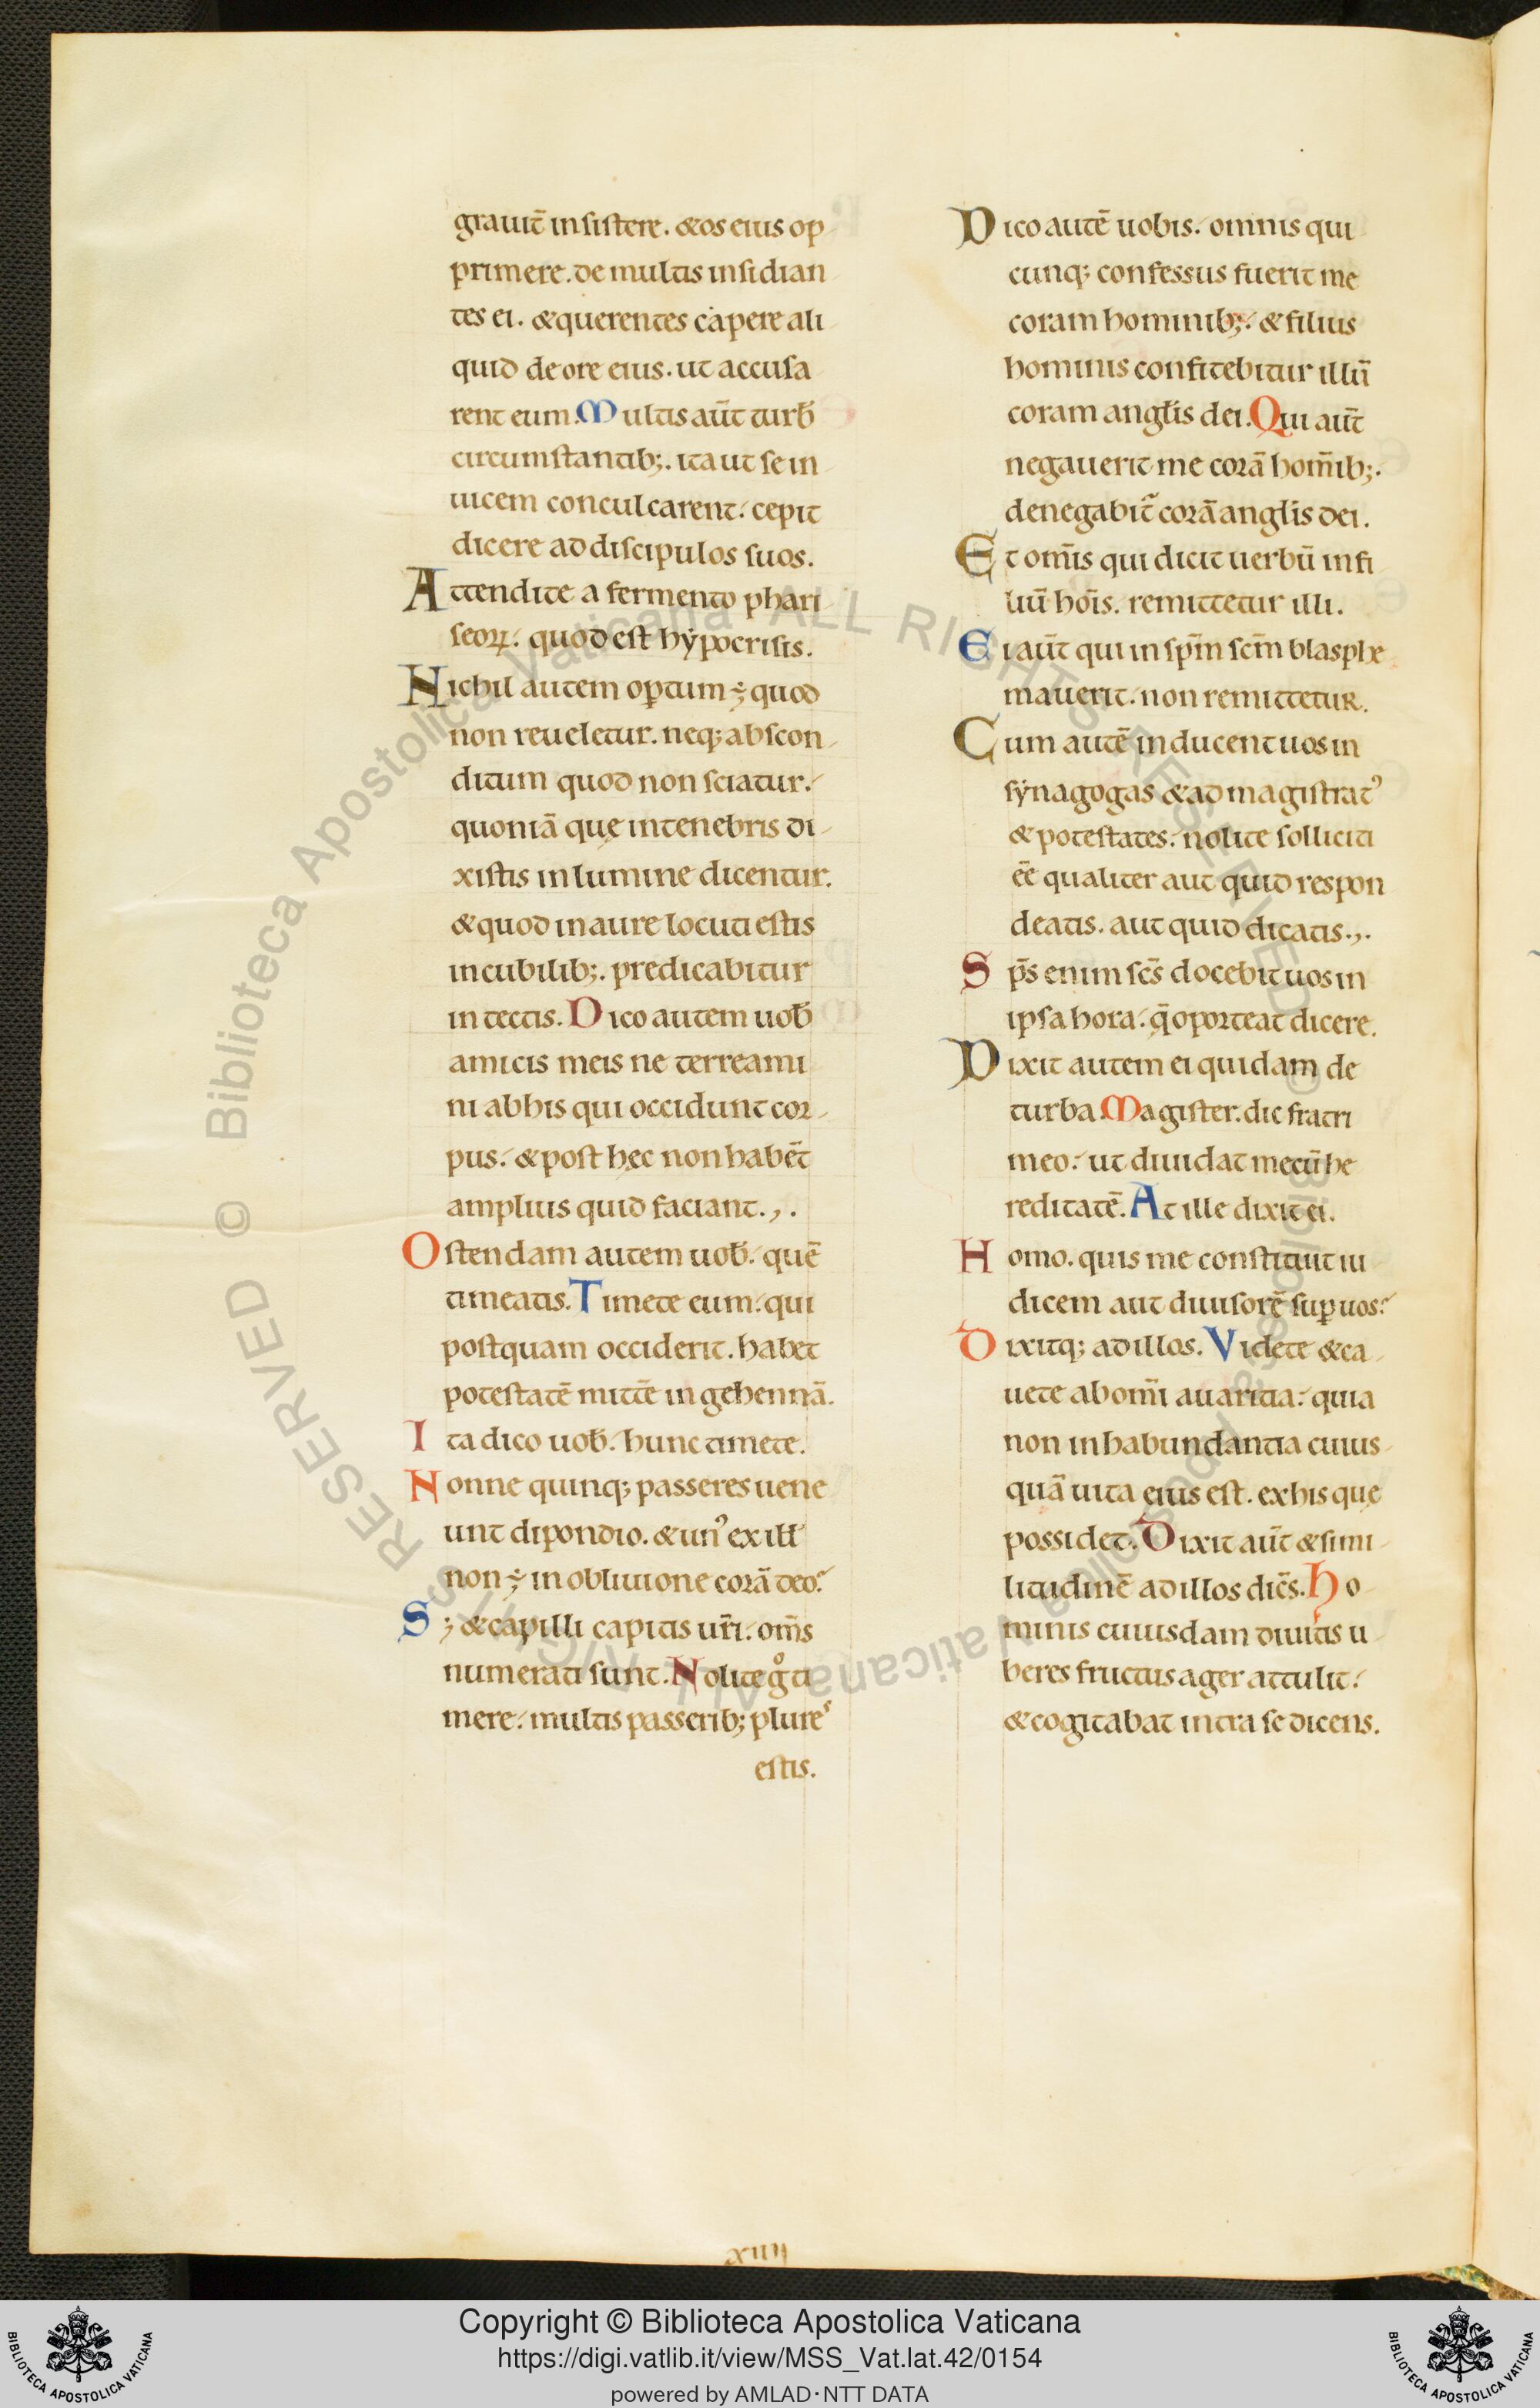 grauit̄ insistere. &os eius op
primere. de multis insidian
tes ei. &querentes capere ali
quid de ore eius. ut accusa
rent eum. Multis aūt turb̄
circumstantib;. ita ut se in
uicem conculcarent. cepit
dicere ad discipulos suos.
Attendite a fermento phari
seoꝝ. quod est hẏpocrisis.
Nichil autem oꝑtum ÷ quod
non reueletur. neq; abscon
ditum quod non sciatur.
quoniā quę in tenebris di
xistis in lumine dicentur.
&quod in aure locuti estis
in cubilib;. predicabitur
in tectis. Dico autem uob̄
amicis meis ne terreami
ni ab his qui occidunt cor
pus. &post hęc non habēt
amplius quid faciant.,.
Ostendam autem uob̄. quē
timeatis. Timete eum. qui
postquam occiderit. habet
potestatē mitt̄e in gehennā.
Ita dico uob̄. hunc timete.
Nonne quinq; passeres uene
unt dipondio. &unꝰ ex ill̄
non ÷ in obliuione corā deo?
S; &capilli capitis ur̄i. om̄s
numerati sunt. Nolite gͦ ti
mere. multis passerib; plures
estis.
Dico autē uobis. omnis qui
cunq; confessus fuerit me
coram hominib;. &filius
hominis confitebitur illū
coram angl̄is dei. Qui aūt
negauerit me corā hom̄ib;.
denegabit᷑ corā angl̄is dei.
Et om̄is qui dicit uerbū in fi
liū hōis. remittetur illi.
Ei aūt qui in sp̄m sc̄m blasphe
mauerit. non remittetur.
Cum autē inducent uos in
sẏnagogas &ad magistratꝰ
&potestates. nolite solliciti
ēē qualiter aut quid respon
deatis. aut quid dicatis.,.
Sp̄s enim sc̄s docebit uos in
ipsa hora. q̄ oporteat dicere.
Dixit autem ei quidam de
turba Magister. dic fratri
meo. ut diuidat mecū he
reditatē. At ille dixit ei.
Homo. quis me constituit iu
dicem aut diuisorē suꝑ uos?
Dixitq; ad illos. Videte &ca
uete ab om̄i auaritia. quia
non in habundantia cuius
quā uita eius est. ex his quę
possidet. Dixit aūt &simi
litudinē ad illos dic̄s. Ho
minis cuiusdam diuitis u
beres fructus ager attulit.
&cogitabat intra se dicens.
xiiij
© Biblioteca Apostolica Vaticana ALL RIGHTS RESERVED © Biblioteca Apostolica Vaticana ALL RIGHTS RESERVED
Copyright © Biblioteca Apostolica Vaticana
https://digi.vatlib.it/view/MSS_Vat.lat.42/0154
powered by AMLAD·NTT DATA
BIBLIOTECA APOSTOLICA VATICANA
BIBLIOTECA APOSTOLICA VATICANA